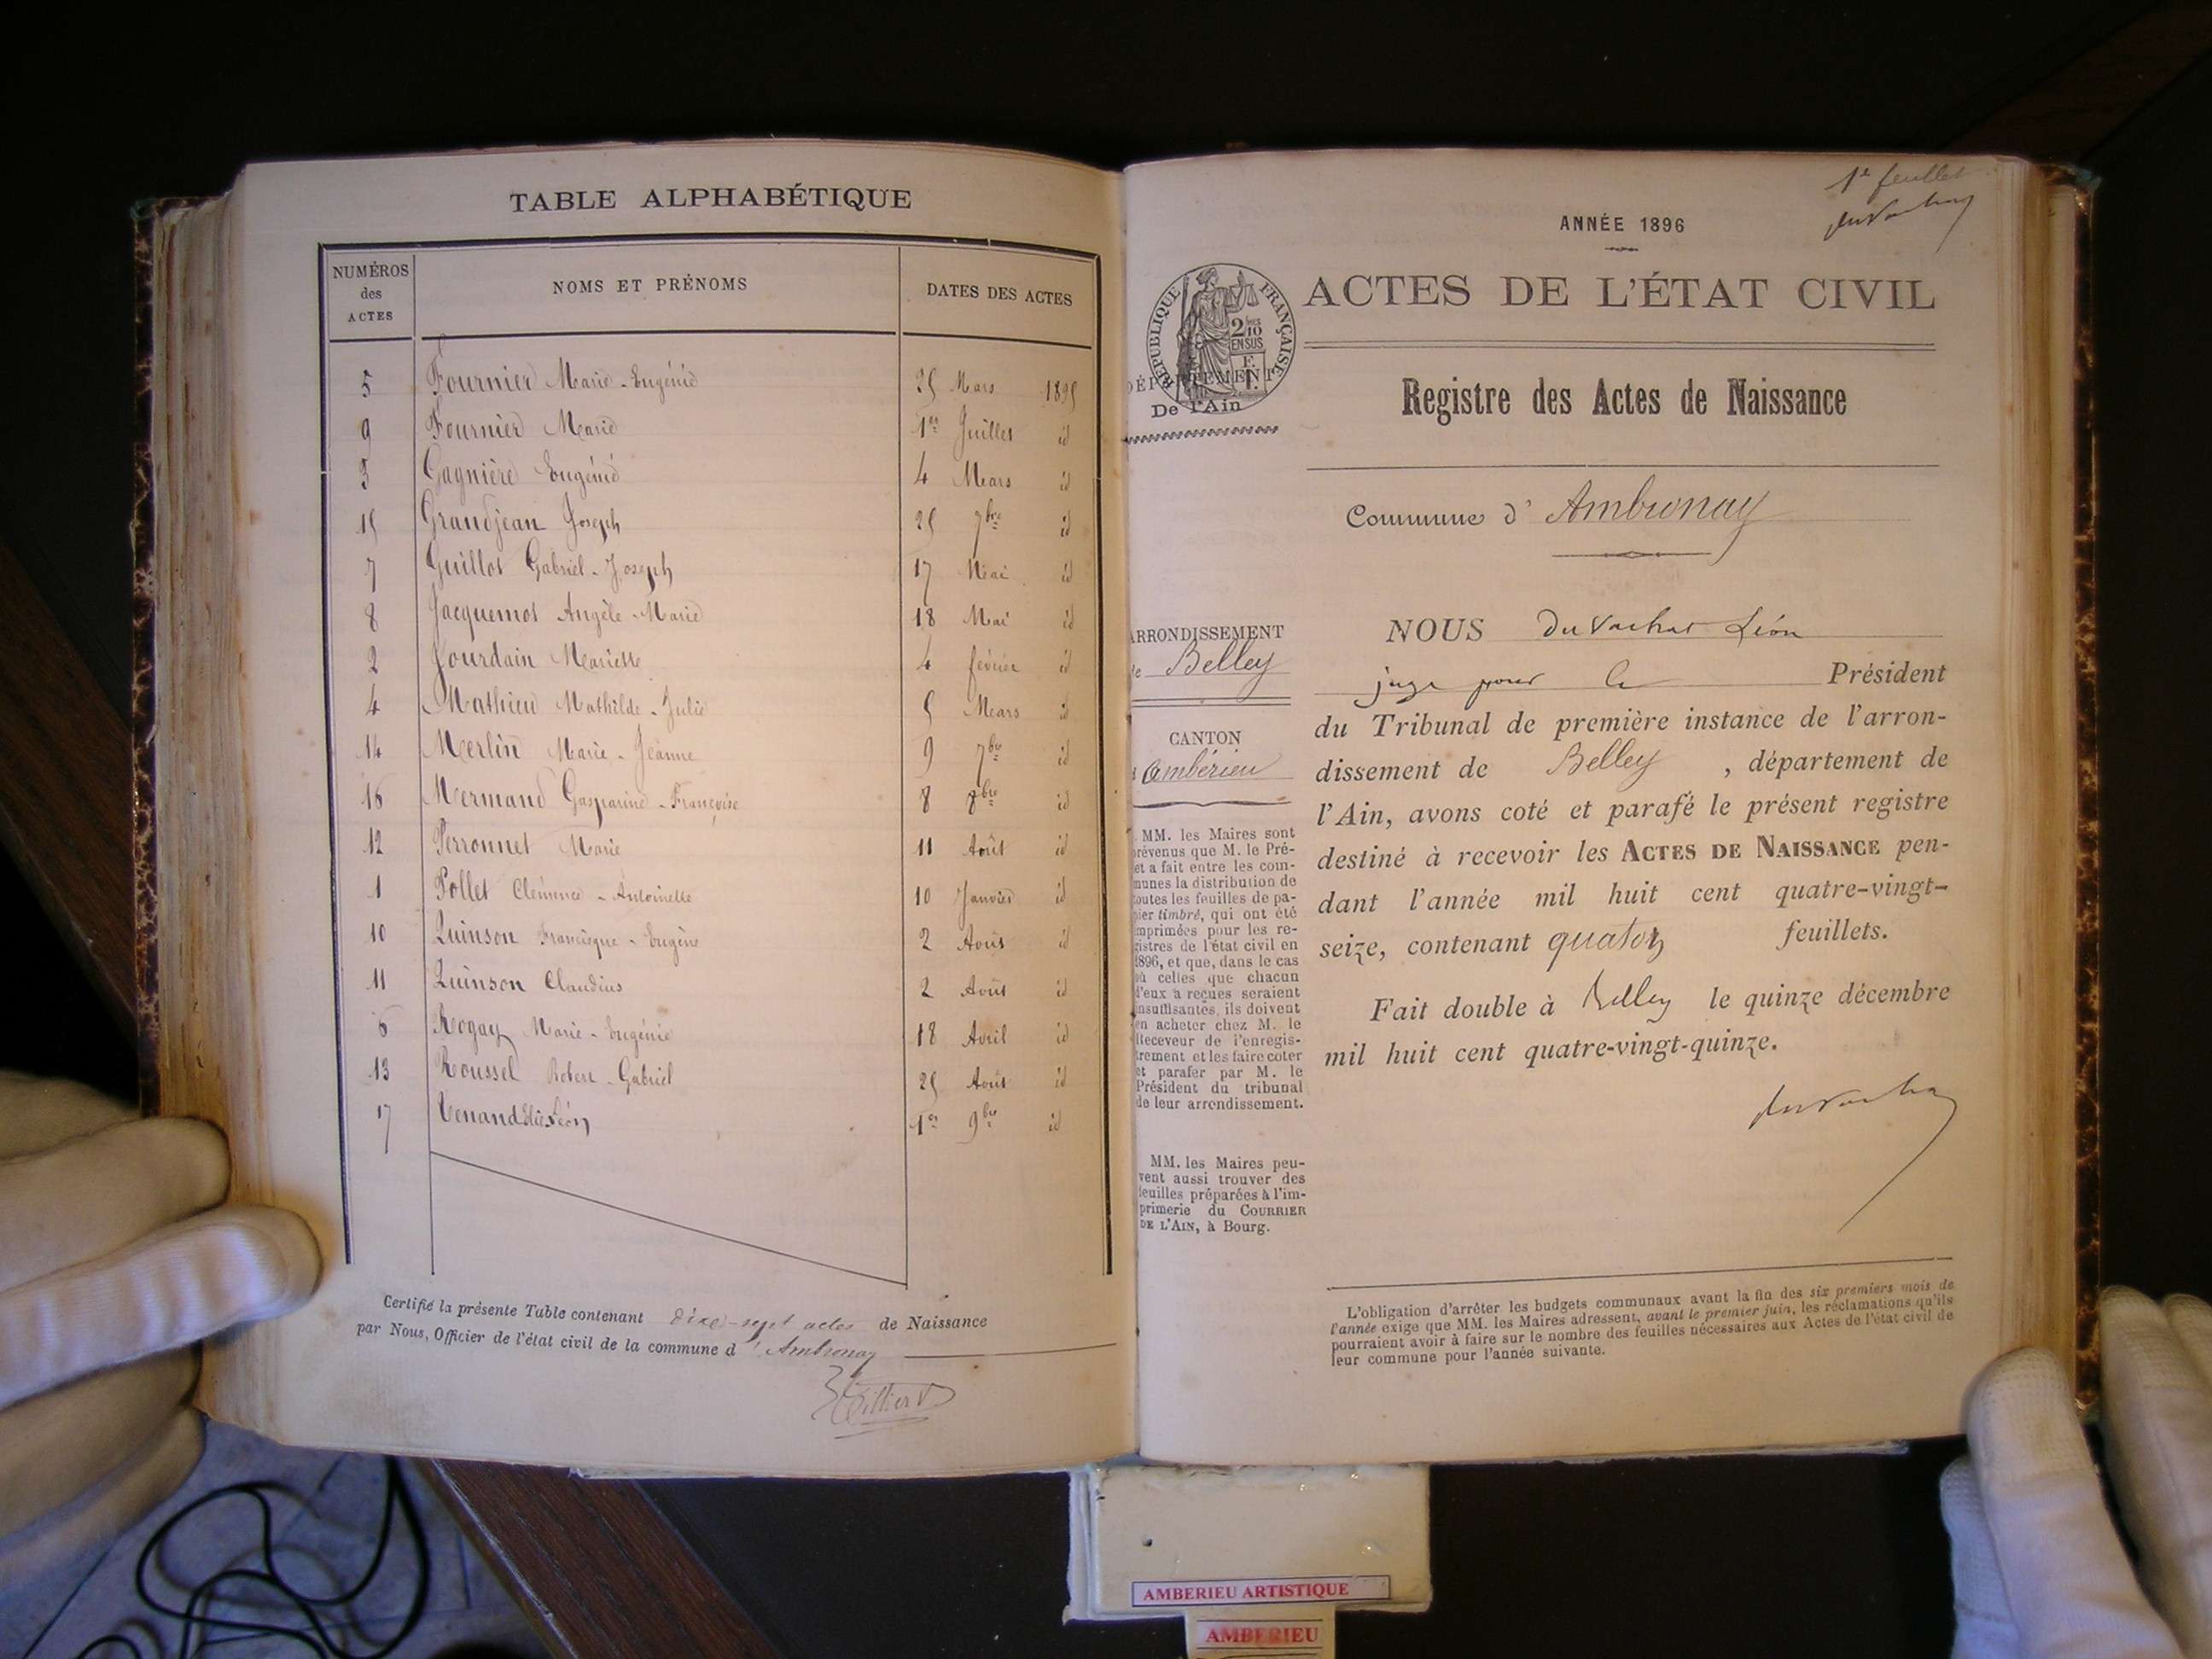 TABLE ALPHABÉTIQUE
NUMÉROS
des
ACTES
NOMS ET PRÉNOMS
DATES DES ACTES
5 Fournier Marie-Eugénie 25 Mars 1895
9 Fournier Marie 1er Juillet id
3 Gagnière Eugénie 4 Mars id
15 Grandjean Joseph 25 7bre id
7 Guillot Gabriel-Joseph 17 Mai id
8 Jacquemot Angèle-Marie 18 Mai id
2 Jourdain Mariette 4 février id
4 Mathieu Mathilde-Julie 5 Mars id
14 Merlin Marie-Jeanne 9 7bre id
16 Mermand Gasparine-Françoise 8 8bre id
12 Perronnet Marie 11 Août id
1 Pollet Clémence-Antoinette 10 Janvier id
10 Quinson Francisque-Eugène 2 Août id
11 Quinson Claudius 2 Août id
6 Rogay Marie-Eugénie 18 Avril id
13 Roussel Robert-Gabriel 25 Août id
17 Venand Elie Léon 1er 9bre id
Certifié la présente Table contenant dixe-sept actes de Naissance
par Nous, Officier de l'état civil de la commune d'Ambronay
Tillier
1er feuillet
duVachat
ANNÉE 1896
RÉPUBLIQUE FRANÇAISE
2/10
EN SUS
DÉPARTEMENT
De l'Ain
ACTES DE L'ÉTAT CIVIL
Registre des Actes de Naissance
Commune d' Ambronay
ARRONDISSEMENT
de Belley
CANTON
d'Ambérieu
MM. les Maires sont
prévenus que M. le Pré-
fet a fait entre les com-
munes la distribution de
toutes les feuilles de pa-
pier timbré, qui ont été
imprimées pour les re-
gistres de l'état civil en
1896, et que, dans le cas
où celles que chacun
d'eux a reçues seraient
insuffisantes, ils doivent
en acheter chez M. le
Receveur de l'enregis-
trement et les faire coter
et parafer par M. le
Président du tribunal
de leur arrondissement.
MM. les Maires peu-
vent aussi trouver des
feuilles préparées à l'im-
primerie du COURRIER
DE L'AIN, à Bourg.
NOUS du Vachat Léon
juge pour le Président
du Tribunal de première instance de l'arron-
dissement de Belley, département de
l'Ain, avons coté et parafé le présent registre
destiné à recevoir les ACTES DE NAISSANCE pen-
dant l'année mil huit cent quatre-vingt-
seize, contenant quatorz feuillets.
Fait double à Belley le quinze décembre
mil huit cent quatre-vingt-quinze.
duVachat
L'obligation d'arrêter les budgets communaux avant la fin des six premiers mois de
l'année exige que MM. les Maires adressent, avant le premier juin, les réclamations qu'ils
pourraient avoir à faire sur le nombre des feuilles nécessaires aux Actes de l'état civil de
leur commune pour l'année suivante.
AMBERIEU ARTISTIQUE
AMBERIEU